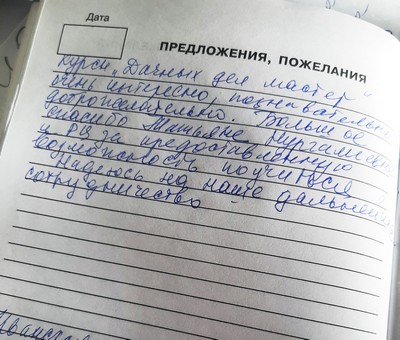 Дата
ПРЕДЛОЖЕНИЯ, ПОЖЕЛАНИЯ
Курсы "Дачных дел мастер"
очень интересно, познавательно,
доброжелательно. Большое
спасибо Татьяне
и РЦ за предоставленную
возможность поучиться.
Надеюсь на наше дальнейшее
сотрудничество